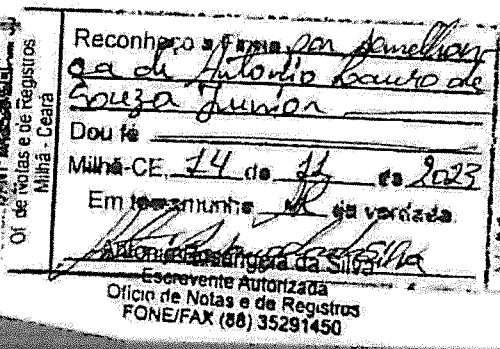 Of de Notas e de Registros
Milhã - Ceará
Reconheço a Firma por semelhan-
ça de Antonio Lauro de
Souza Junior
Dou fé
Milhã-CE, 14 de 11 de 2023
Em testemunho da verdade.
Antonia Rosangela da Silva
Escrevente Autorizada
Oficio de Notas e de Registros
FONE/FAX (88) 35291450